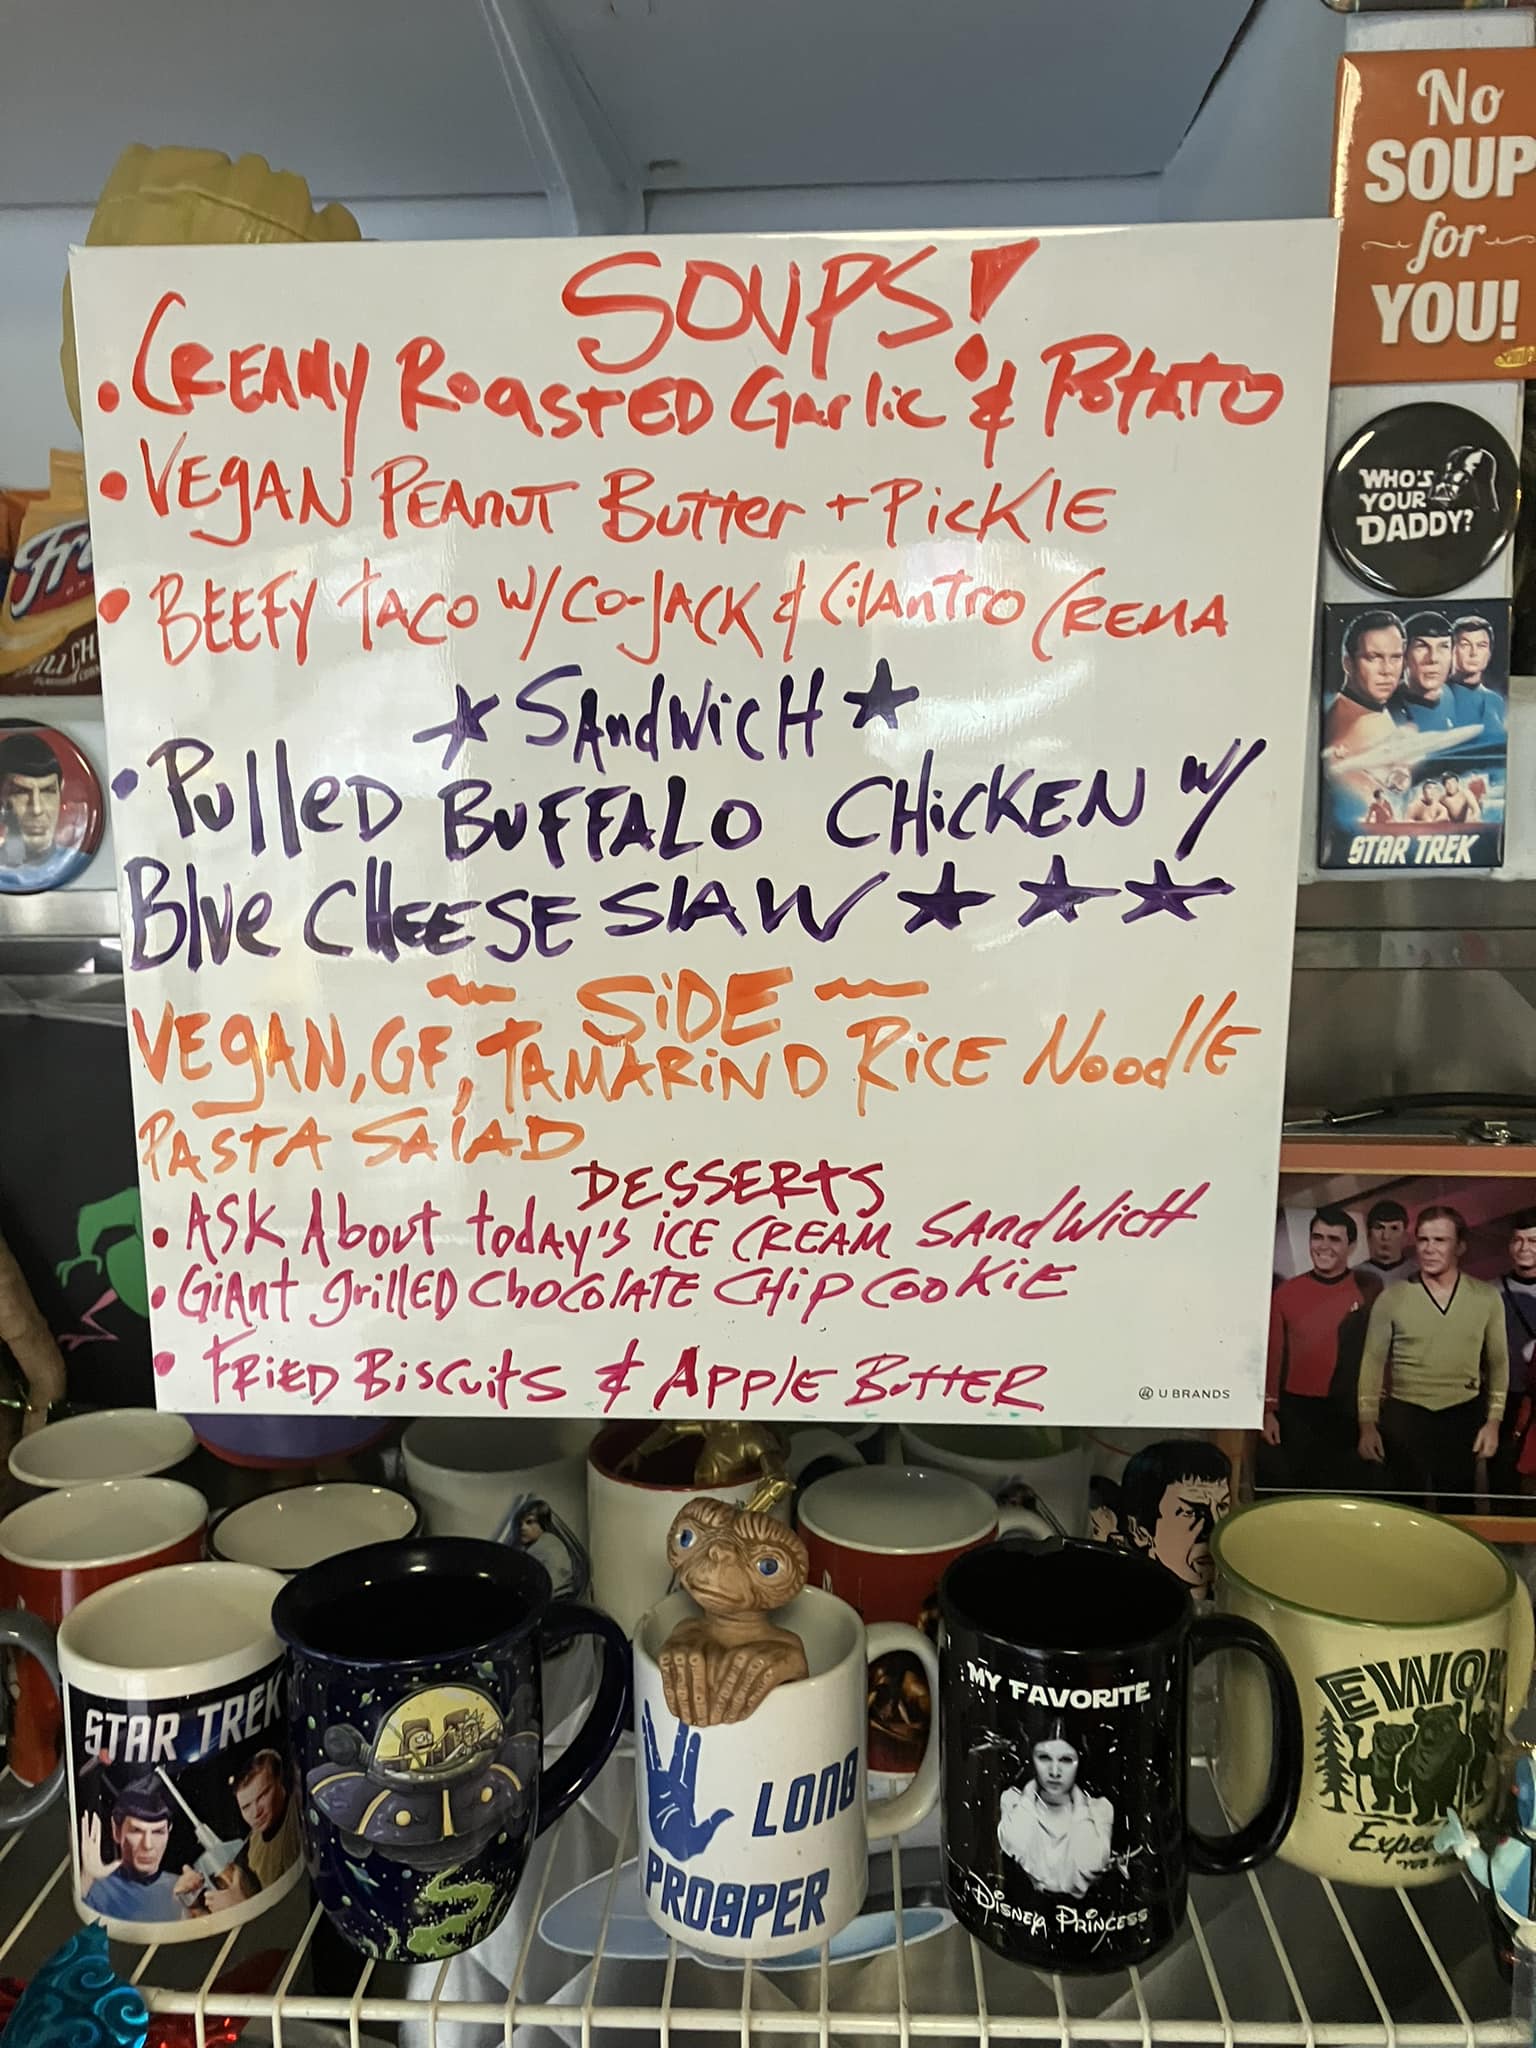 No
SOUP
for
YOU!
SOUPS!
• CREAMY ROASTED Garlic & POTATO
• VEGAN PEANUT Butter + PicKlE
• BEEFY TACO W/ CO-JACK & CilAntrO CREMA
★ SAndWicH ★
• PullED BUFFALO CHicKEN W/
Blue CHEESE SlAW ★ ★ ★
~ SiDE ~
VEgAN, GF, TAMARiND RiCE NoodlE
PASTA SAlAD
DESSERtS
• ASK About today's iCE CREAM SAndWicH
• GiAnt grillED ChocolATE CHip COOKiE
• FRiED BiScuitS & APPlE ButtER
U BRANDS
WHO'S
YOUR
DADDY?
STAR TREK
STAR TREK
LONG
PROSPER
MY FAVORITE
DISNEY PRINCESS